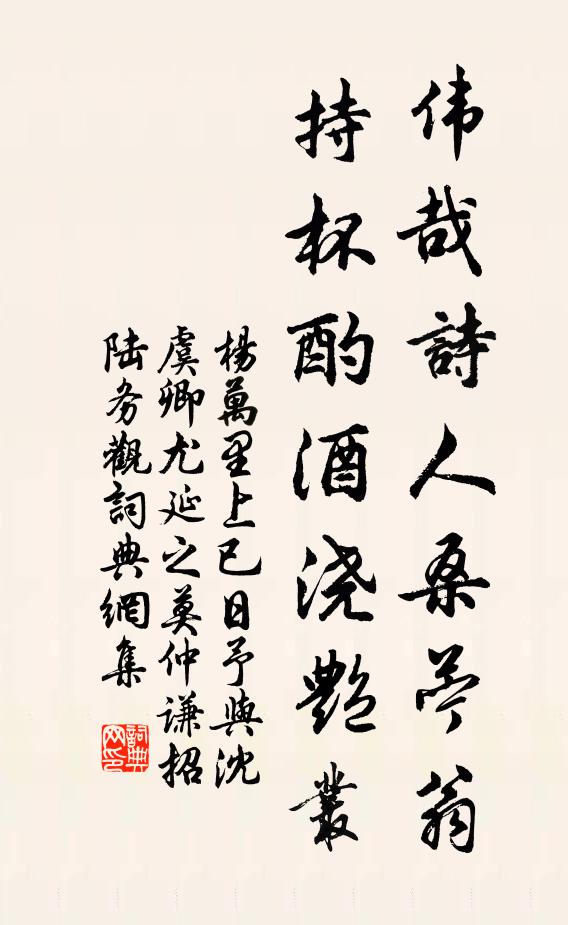 伟哉詩人桑苧翁
持杯酌酒浇艷叢
楊萬里上巳日予與沈
虞卿尤延之莫仲謙招
陆务觀詞典網集
詞典網印